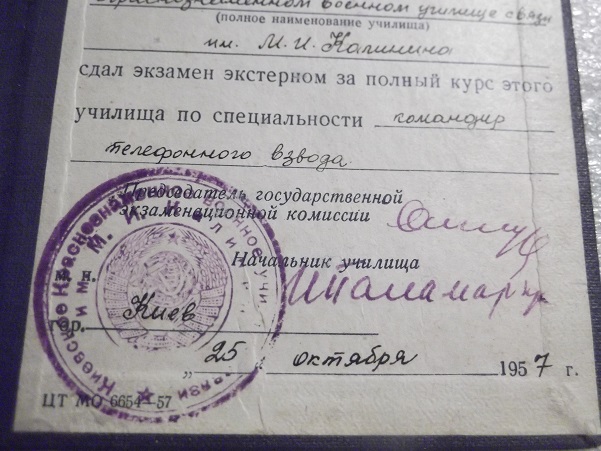 Краснознаменном военном училище связи
(полное наименование училища)
им. М. И. Калинина
сдал экзамен экстерном за полный курс этого
училища по специальности командир
телефонного взвода
Председатель государственной
экзаменационной комиссии
Начальник училища
м. п.
гор. Киев
„25 октября 1957 г.
ЦТ МО 6654—57
Киевское Краснознаменное военное учи связи
им. М. И. Калинина